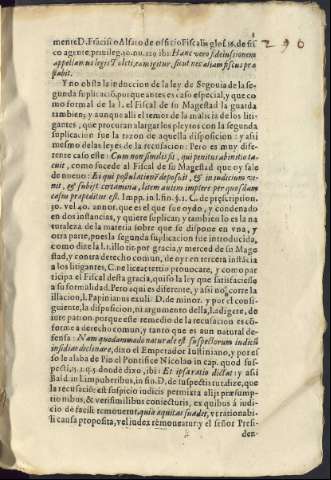 290
mente D. Frācisco Alfaro de officio Fiscalis glos. 16. de fis
co agente, privileg. 10. nu. 110. ibi: Hanc verò fideiussionem
appellamus legis Toleti, eam igitur, sicut nec aliam fiscus præ
stabit.
Y no obsta la induccion de la ley de Segouia de la se
gunda suplicaciō, porque antes es caso especial, y que co
mo formal de la l. el Fiscal de su Magestad la guarda
tambien; y aunque alli el temor de la malicia de los liti
gantes, que procuran alargar los pleytos con la segunda
suplicacion fue la razon de aquella disposicion: y ahi
mesmo de las leyes de la recusacion: Pero es muy dife-
rente caso este: Cum non similis sit, qui penitus ab initio ta-
cuit, como sucede al Fiscal de su Magestad que oy sale
de nueuo: Et qui postulationē deposuit, & in iudicium ve-
nit, & subijt certamina, litem autem implere per quosdam
casus præpeditus est. Imp. in l. fin. §. 1. C. de præscription.
30. vel 40. annor. que es el que fue oydo, y condenado
en dos instancias, y quiere suplicar; y tambien lo es la na
turaleza de la materia sobre que se dispone en vna, y
otra parte, pues la segunda suplicacion fue introducida,
como dize la l. illo tit. por gracia, y merced de su Mage-
stad, y contra derecho comun, de oyr en tercera instācia
a los litigantes, C. ne liceat tertio prouocare, y como par
ticipa el Fiscal desta gracia, quiso la ley que satisfaciesse
a su formalidad. Pero aqui es diferente, y assi no corre la
illacion, l. Papinianus exuli. D. de minor. y por el consi-
guiente, la disposicion, ni argumento della, l. adigere, de
iure patron. porque este remedio de la recusacion es cō-
forme a derecho comun, y tanto que es aun natural de-
fensa: Nam quodammodo naturale est suspectorum iudicū
insidias declinare, dixo el Emperador Iustiniano, y por es
so le alaba de Pio el Pontifice Nicolao in cap. quod sus-
pecti, 15. 3. q. 5. donde dixo, ibi: Et ipsa ratio dictat: y assi
Bald. in l. impuberibus, in fin. D. de suspectis tut. dize, que
la recusaciō est suspicio iudicis permixta alijs præsump-
tionibus, & verisimilibus coniecturis, ex quibus à iudi-
cio de facili remouetur, quia æquitas suadet, ve rationabi-
li causa proposita, vel iudex remoueatur: y el señor Presi-
den-